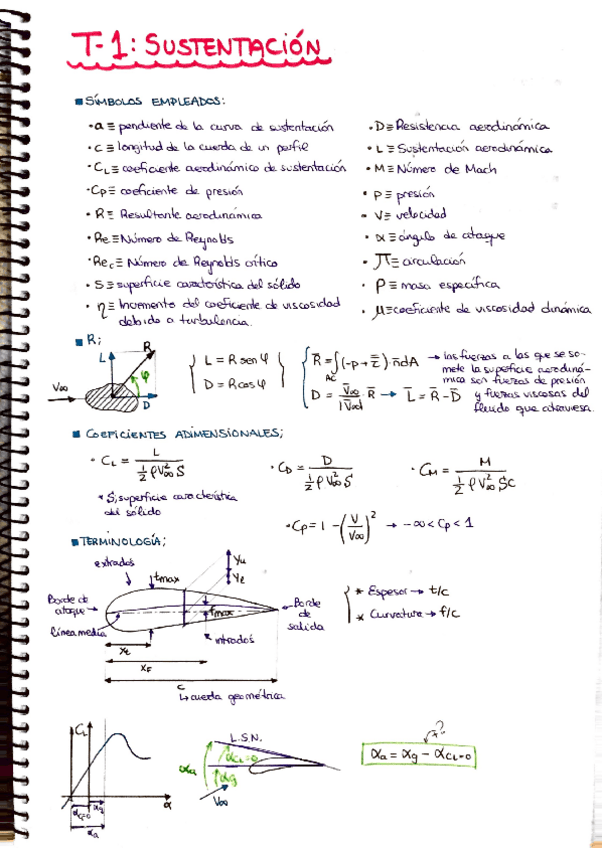 T-1: SUSTENTACIÓN
SÍMBOLOS EMPLEADOS:
• a ≡ pendiente de la curva de sustentación
• c ≡ longitud de la cuerda de un perfil
• CL ≡ coeficiente aerodinámico de sustentación
• Cp ≡ coeficiente de presión
• R ≡ Resultante aerodinámica
• Re ≡ Número de Reynolds
• Rec ≡ Número de Reynolds crítico
• S ≡ superficie característica del sólido
• η ≡ Incremento del coeficiente de viscosidad
debido a turbulencia.
• D ≡ Resistencia aerodinámica
• L ≡ Sustentación aerodinámica
• M ≡ Número de Mach
• P ≡ presión
• V ≡ velocidad
• α ≡ ángulo de ataque
• Π ≡ circulación
• ρ ≡ masa específica
• μ ≡ coeficiente de viscosidad dinámica
R;
L R φ V∞ D
L = R sen φ
D = R cos φ
R̄ = ∫AC (-p + τ̿) · n̄ dA → las fuerzas a las que se so-
mete la superficie aerodiná-
mica son fuerzas de presión
y fuerzas viscosas del
fluido que atraviesa.
D = V̄∞/|V̄∞| · R̄ → L̄ = R̄ - D̄
COEFICIENTES ADIMENSIONALES;
• CL = L / ½ ρ V∞² S
• CD = D / ½ ρ V∞² S
• CM = M / ½ ρ V∞² SC
* S; superficie característica
del sólido
• Cp = 1 - (V/V∞)² → -∞ < Cp < 1
TERMINOLOGÍA;
extrados
tmax
Yu
Ye
Borde de
ataque
fmax
Borde
de
salida
línea media
intrados
Xt
XF
c
↳ cuerda geométrica
* Espesor → t/c
* Curvatura → f/c
CL
α
αCL=0
αg
αa
L.S.N.
αa
αCL=0
αg
V∞
?
αa = αg - αCL=0